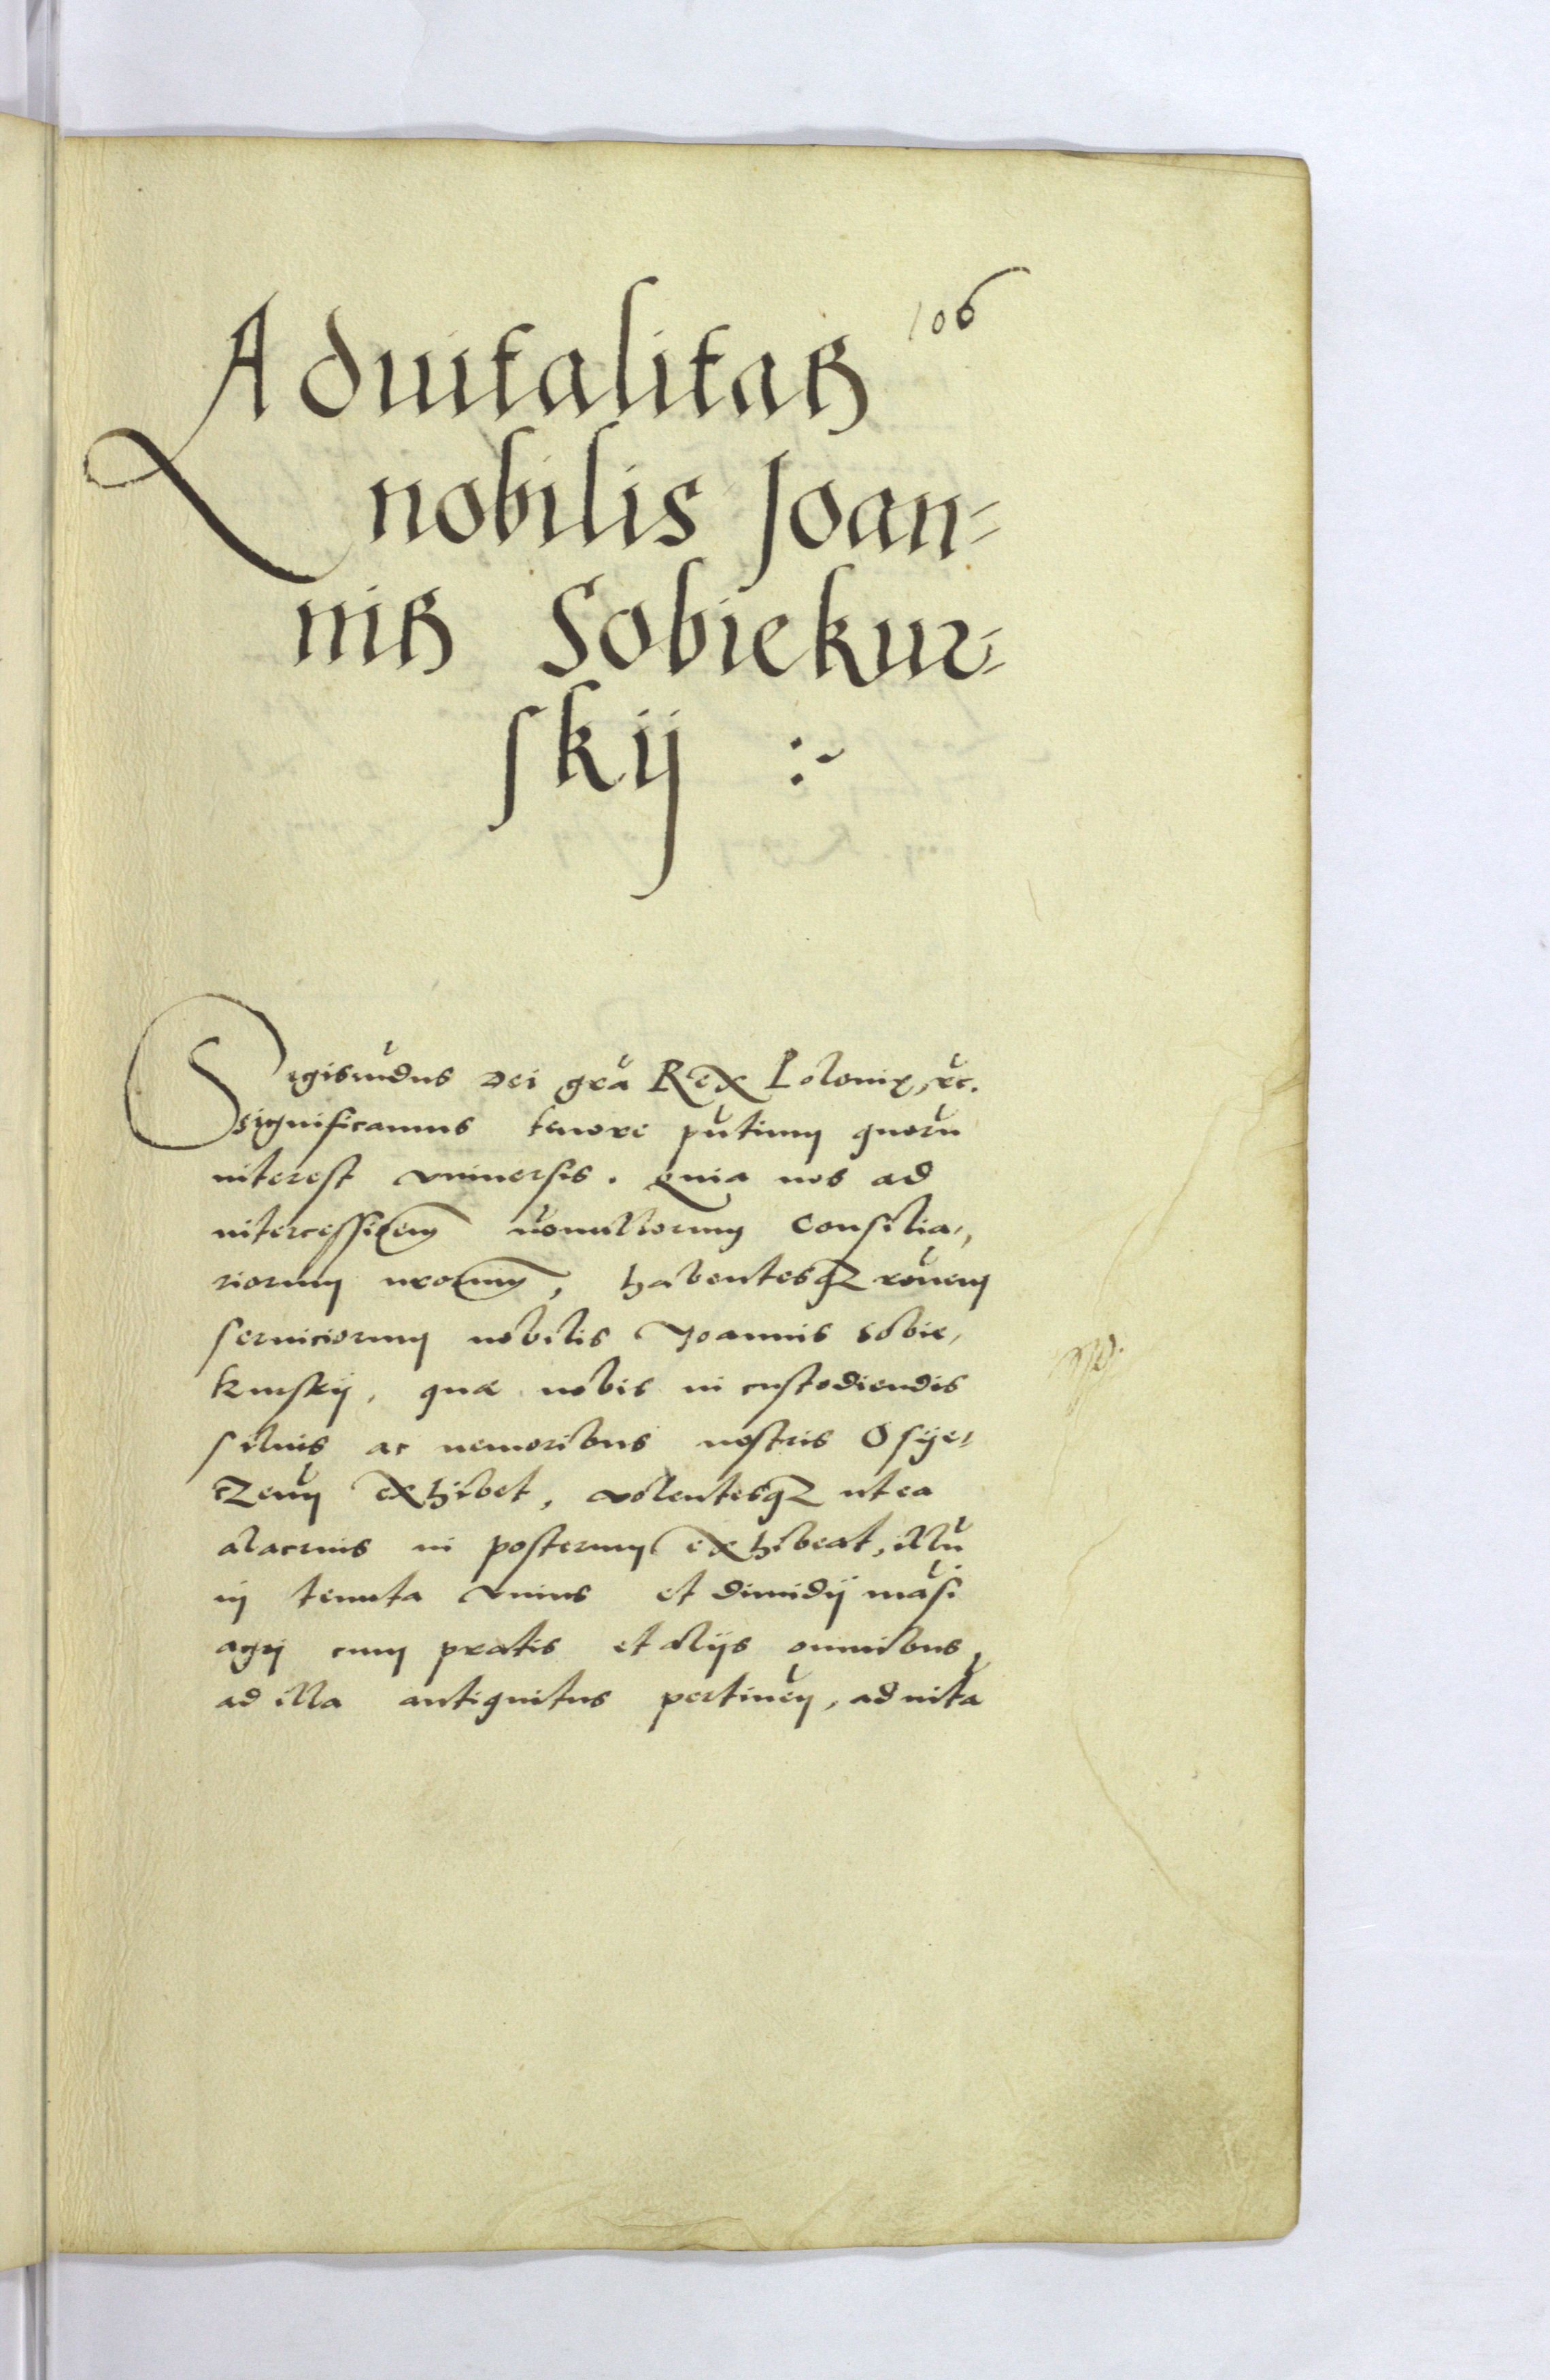 106
Aduitalitas
nobilis Joan=
nis Sobiekur=
skij :~
Sigismũdus Dei grã Rex Poloniæ, &c.
significamus tenore pñtium quorũ
interest vniuersis. Quia nos ad
intercessiem nonnullorum Consilia-
riorum nrorum, habentesq3 rõnem
seruiciorum nobilis Joannis Sobie-
kurskij, quæ nobis in custodiendis
siluis ac nemoribus nostris Osije-
czeñ exhibet, volentesq3 ut ea
alacrius in posterum exhibeat, illũ
in tenuta vnius et dimidij mãsi
agri cum pratis et alijs omnibus,
ad illa antiquitus pertineñ, ad uitã